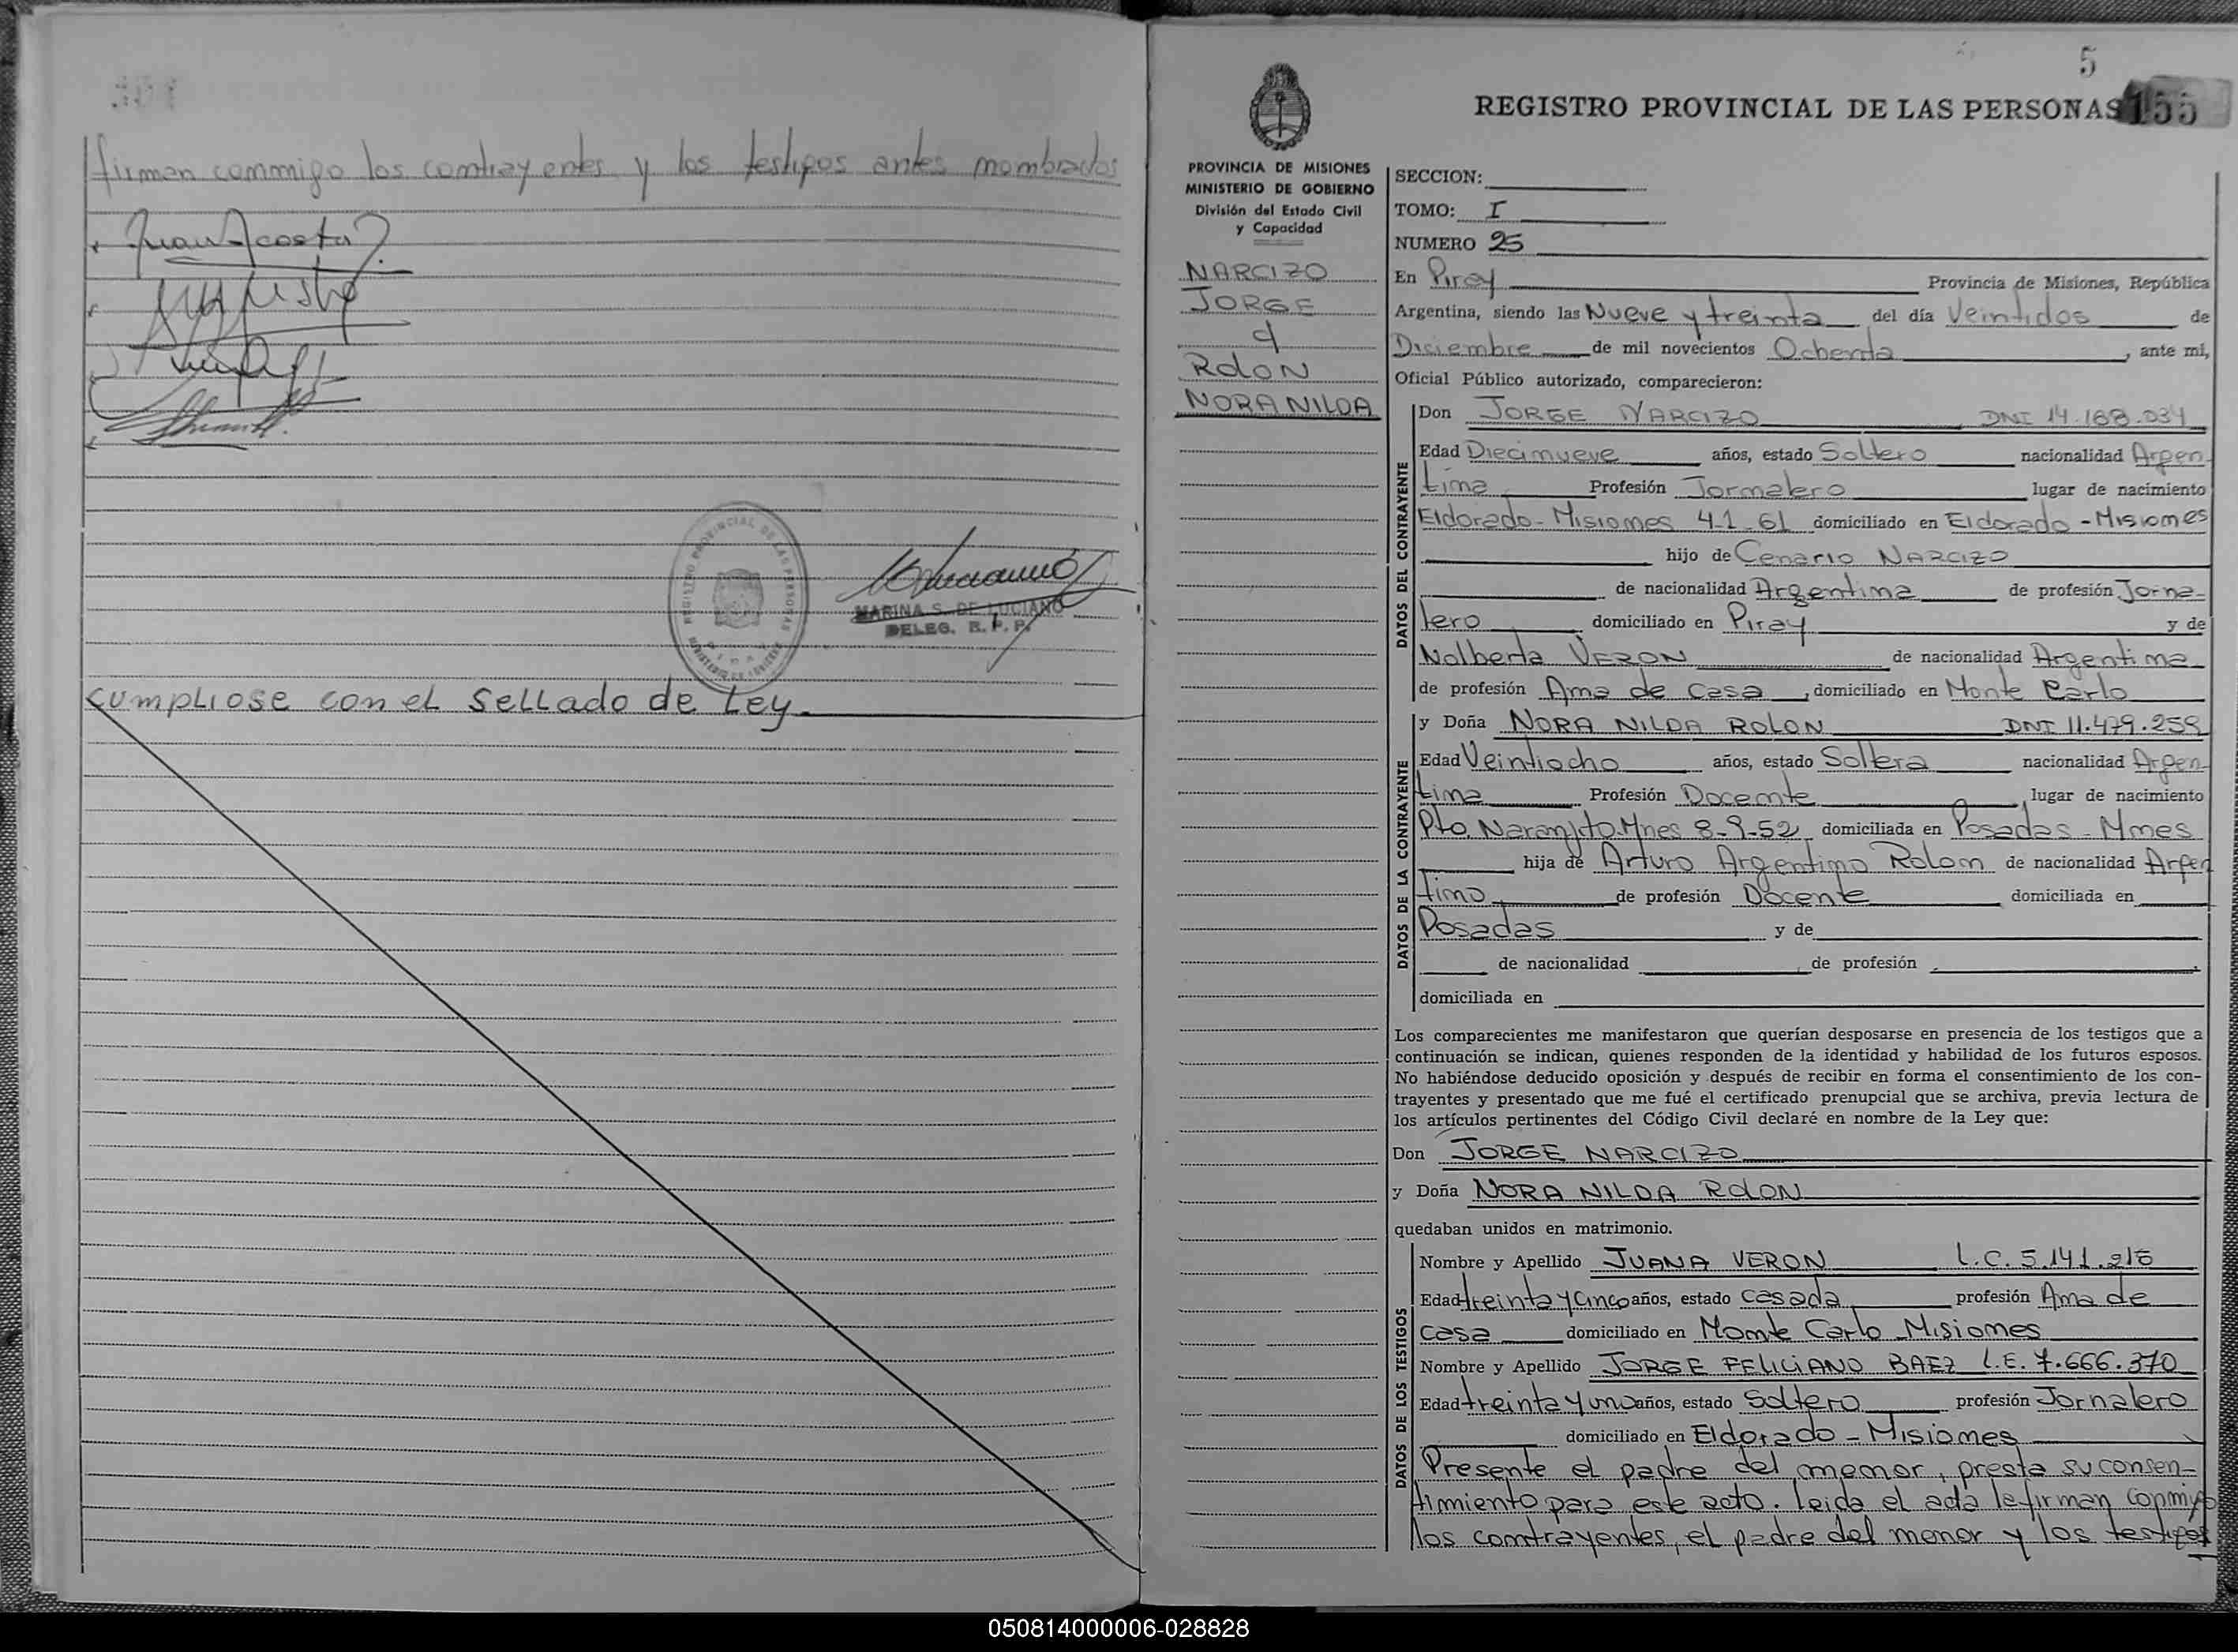 firman conmigo los contrayentes y los testigos antes nombrados
Juan Acosta
REGISTRO PROVINCIAL DE LAS PERSONAS
MARINA S. DE LUCIANO
DELEG. R. P. P.
cumpliose con el sellado de Ley.
5
REGISTRO PROVINCIAL DE LAS PERSONAS 155
PROVINCIA DE MISIONES
MINISTERIO DE GOBIERNO
División del Estado Civil
y Capacidad
NARCIZO
JORGE
c/
ROLON
NORA NILDA
SECCION:
TOMO: I
NUMERO 25
En Piray Provincia de Misiones, República
Argentina, siendo las Nueve y treinta del día Veintidos de
Diciembre de mil novecientos Ochenta, ante mi,
Oficial Público autorizado, comparecieron:
DATOS DEL CONTRAYENTE
Don JORGE NARCIZO DNI 14.168.034
Edad Diecinueve años, estado Soltero nacionalidad Argen
tina Profesión Jornalero lugar de nacimiento
Eldorado - Misiones 4-1-61 domiciliado en Eldorado - Misiones
hijo de Cenario NARCIZO
de nacionalidad Argentina de profesión Jorna-
lero domiciliado en Piray y de
Nolberta VERON de nacionalidad Argentina
de profesión Ama de casa, domiciliado en Monte Carlo
DATOS DE LA CONTRAYENTE
y Doña NORA NILDA ROLON DNI 11.479.259
Edad Veintiocho años, estado Soltera nacionalidad Argen-
tina Profesión Docente, lugar de nacimiento
Pto Naranjito-Mnes 8-9-52 domiciliada en Posadas - Mnes
hija de Arturo Argentino Rolon de nacionalidad Argen
tino de profesión Docente domiciliada en
Posadas y de
de nacionalidad de profesión
domiciliada en
Los comparecientes me manifestaron que querían desposarse en presencia de los testigos que a
continuación se indican, quienes responden de la identidad y habilidad de los futuros esposos.
No habiéndose deducido oposición y después de recibir en forma el consentimiento de los con-
trayentes y presentado que me fué el certificado prenupcial que se archiva, previa lectura de
los artículos pertinentes del Código Civil declaré en nombre de la Ley que:
Don JORGE NARCIZO
y Doña NORA NILDA ROLON
quedaban unidos en matrimonio.
DATOS DE LOS TESTIGOS
Nombre y Apellido JUANA VERON L.C. 5.141.215
Edad treinta y cinco años, estado casada profesión Ama de
casa domiciliado en Monte Carlo - Misiones
Nombre y Apellido JORGE FELICIANO BAEZ L.E. 7.666.370
Edad treinta y uno años, estado Soltero profesión Jornalero
domiciliado en Eldorado - Misiones
Presente el padre del menor, presta su consen-
timiento para este acto. leida el acta la firman conmigo
los contrayentes, el padre del menor y los testigos
050814000006-028828